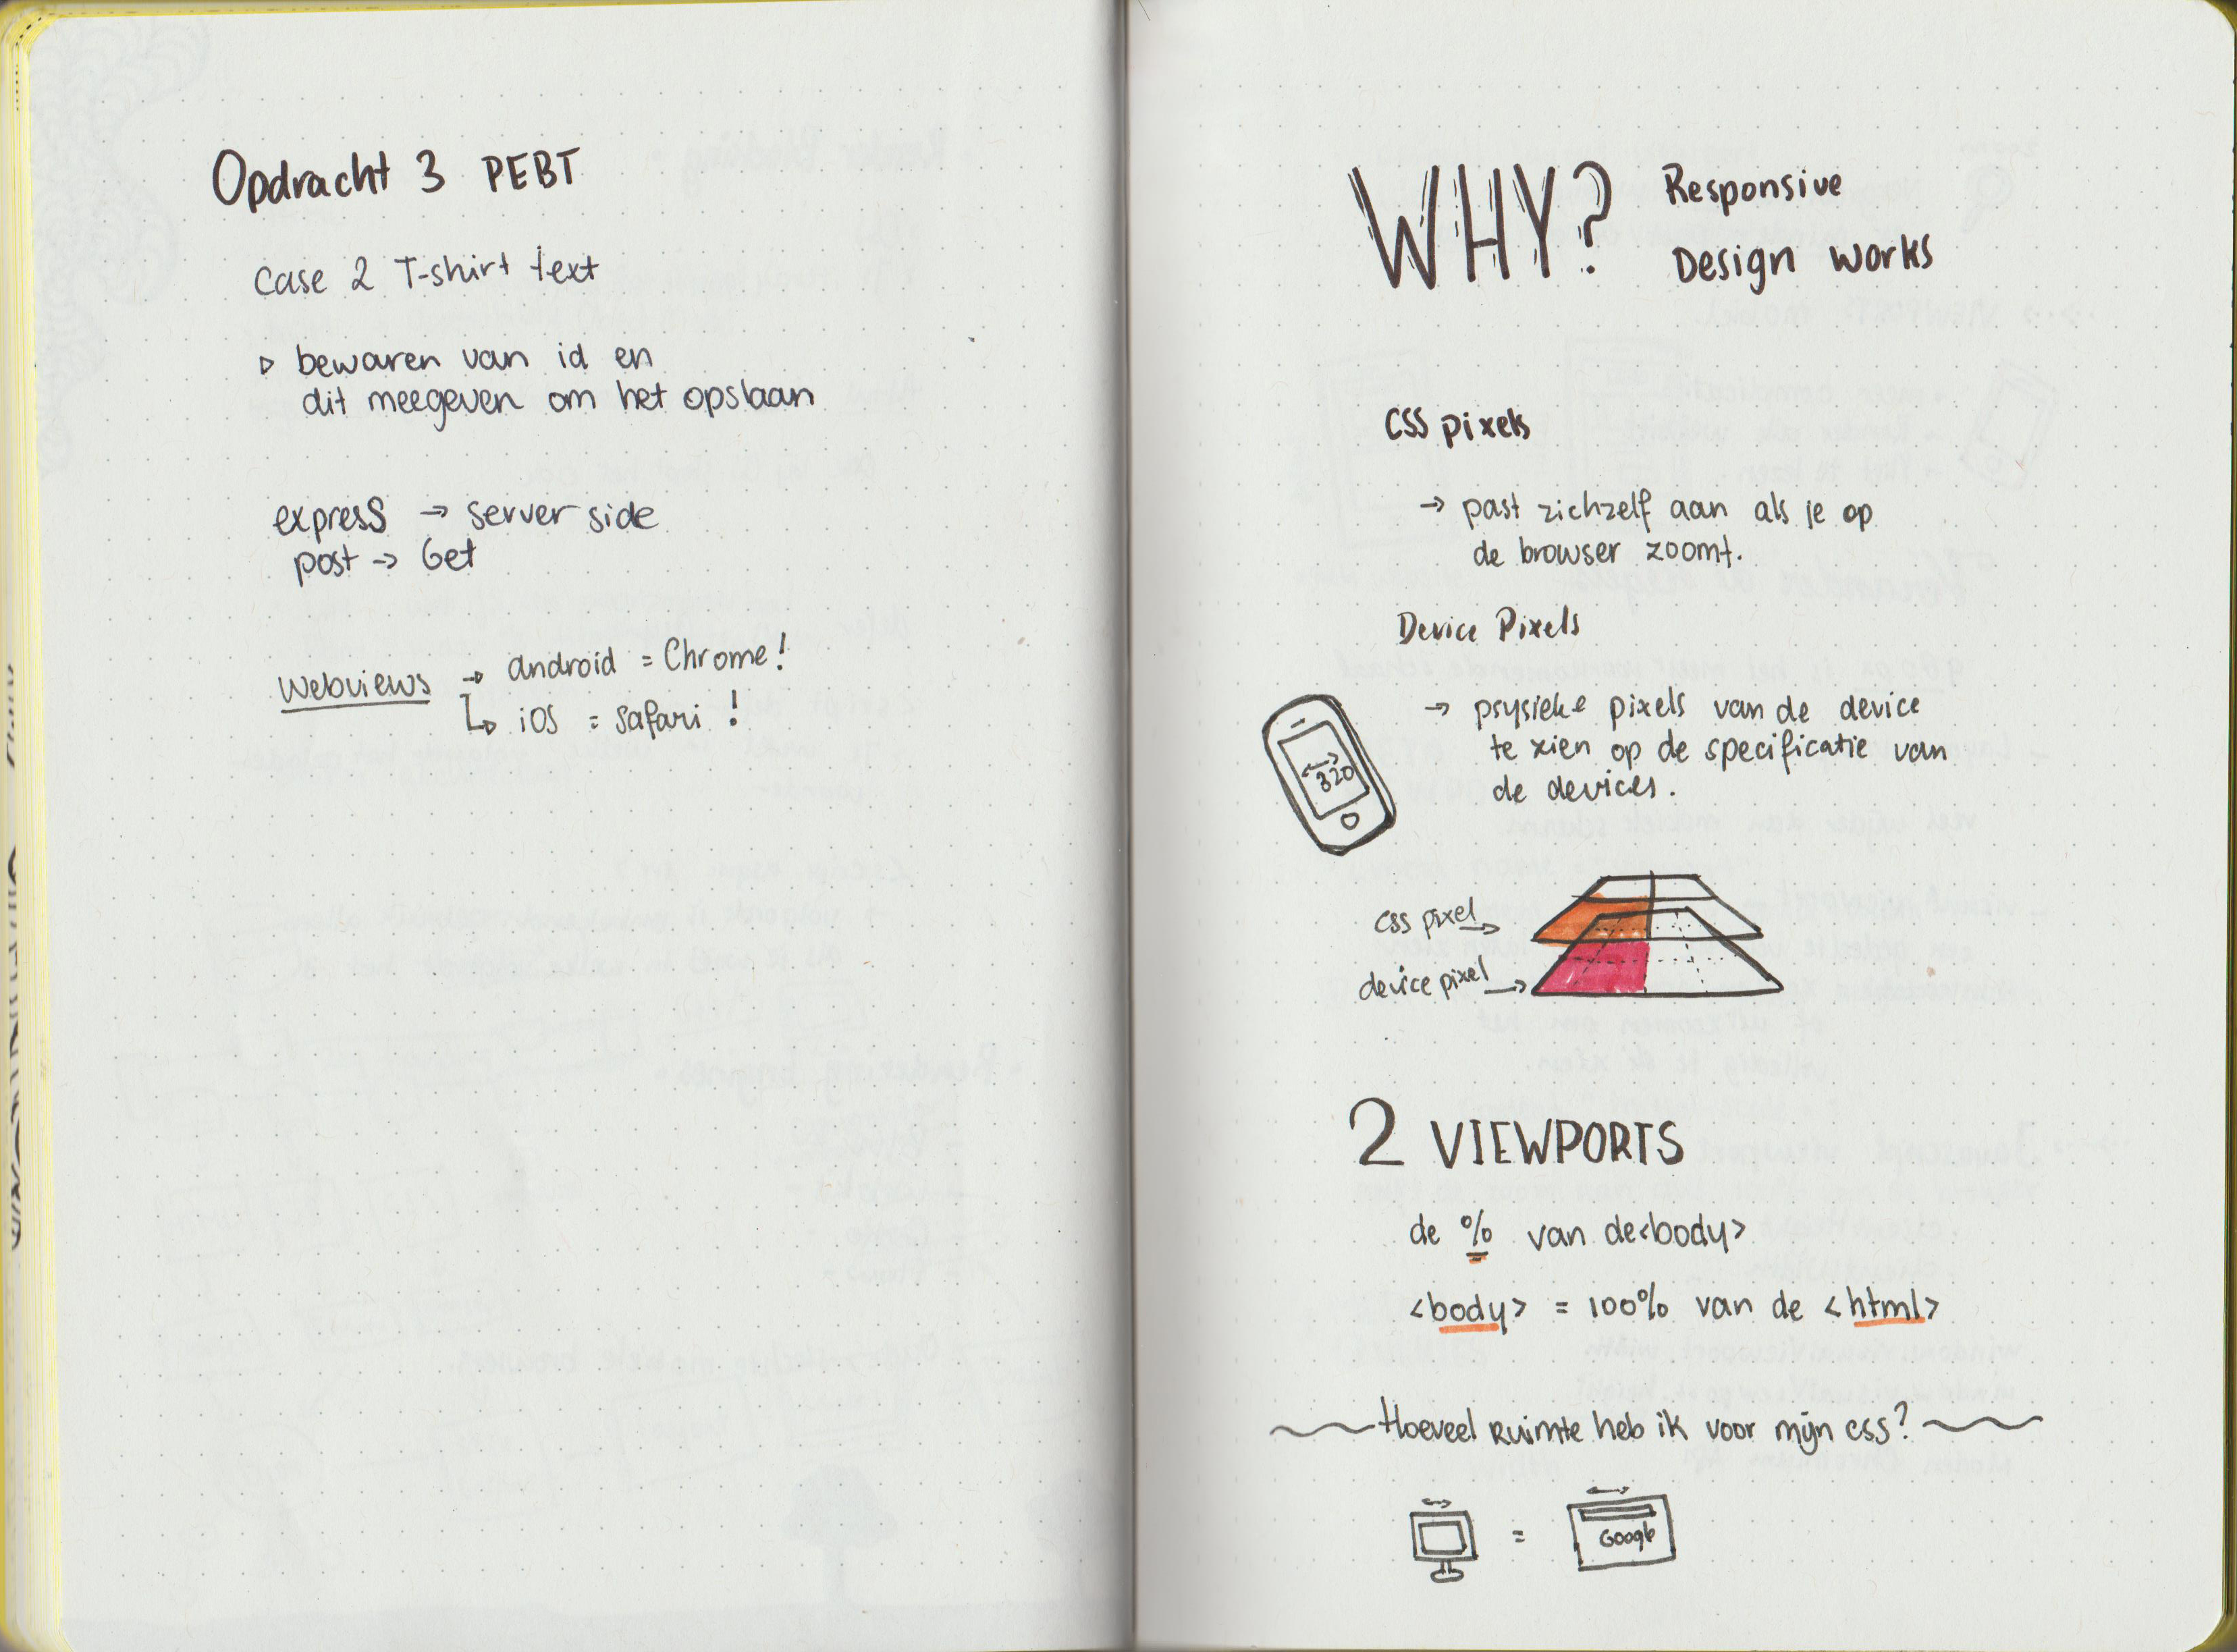 Opdracht 3 PEBT
Case 2 T-shirt text
▹ bewaren van id en
dit meegeven om het opslaan
express → server side
post → Get
Webviews → android = Chrome!
↳ iOS = Safari!
WHY? Responsive
Design works
CSS pixels
→ past zichzelf aan als je op
de browser zoomt.
Device Pixels
→ psysieke pixels van de device
te zien op de specificatie van
de devices.
320
css pixel →
device pixel →
2 VIEWPORTS
de % van de <body>
<body> = 100% van de <html>
Hoeveel Ruimte heb ik voor mijn css?
= Google